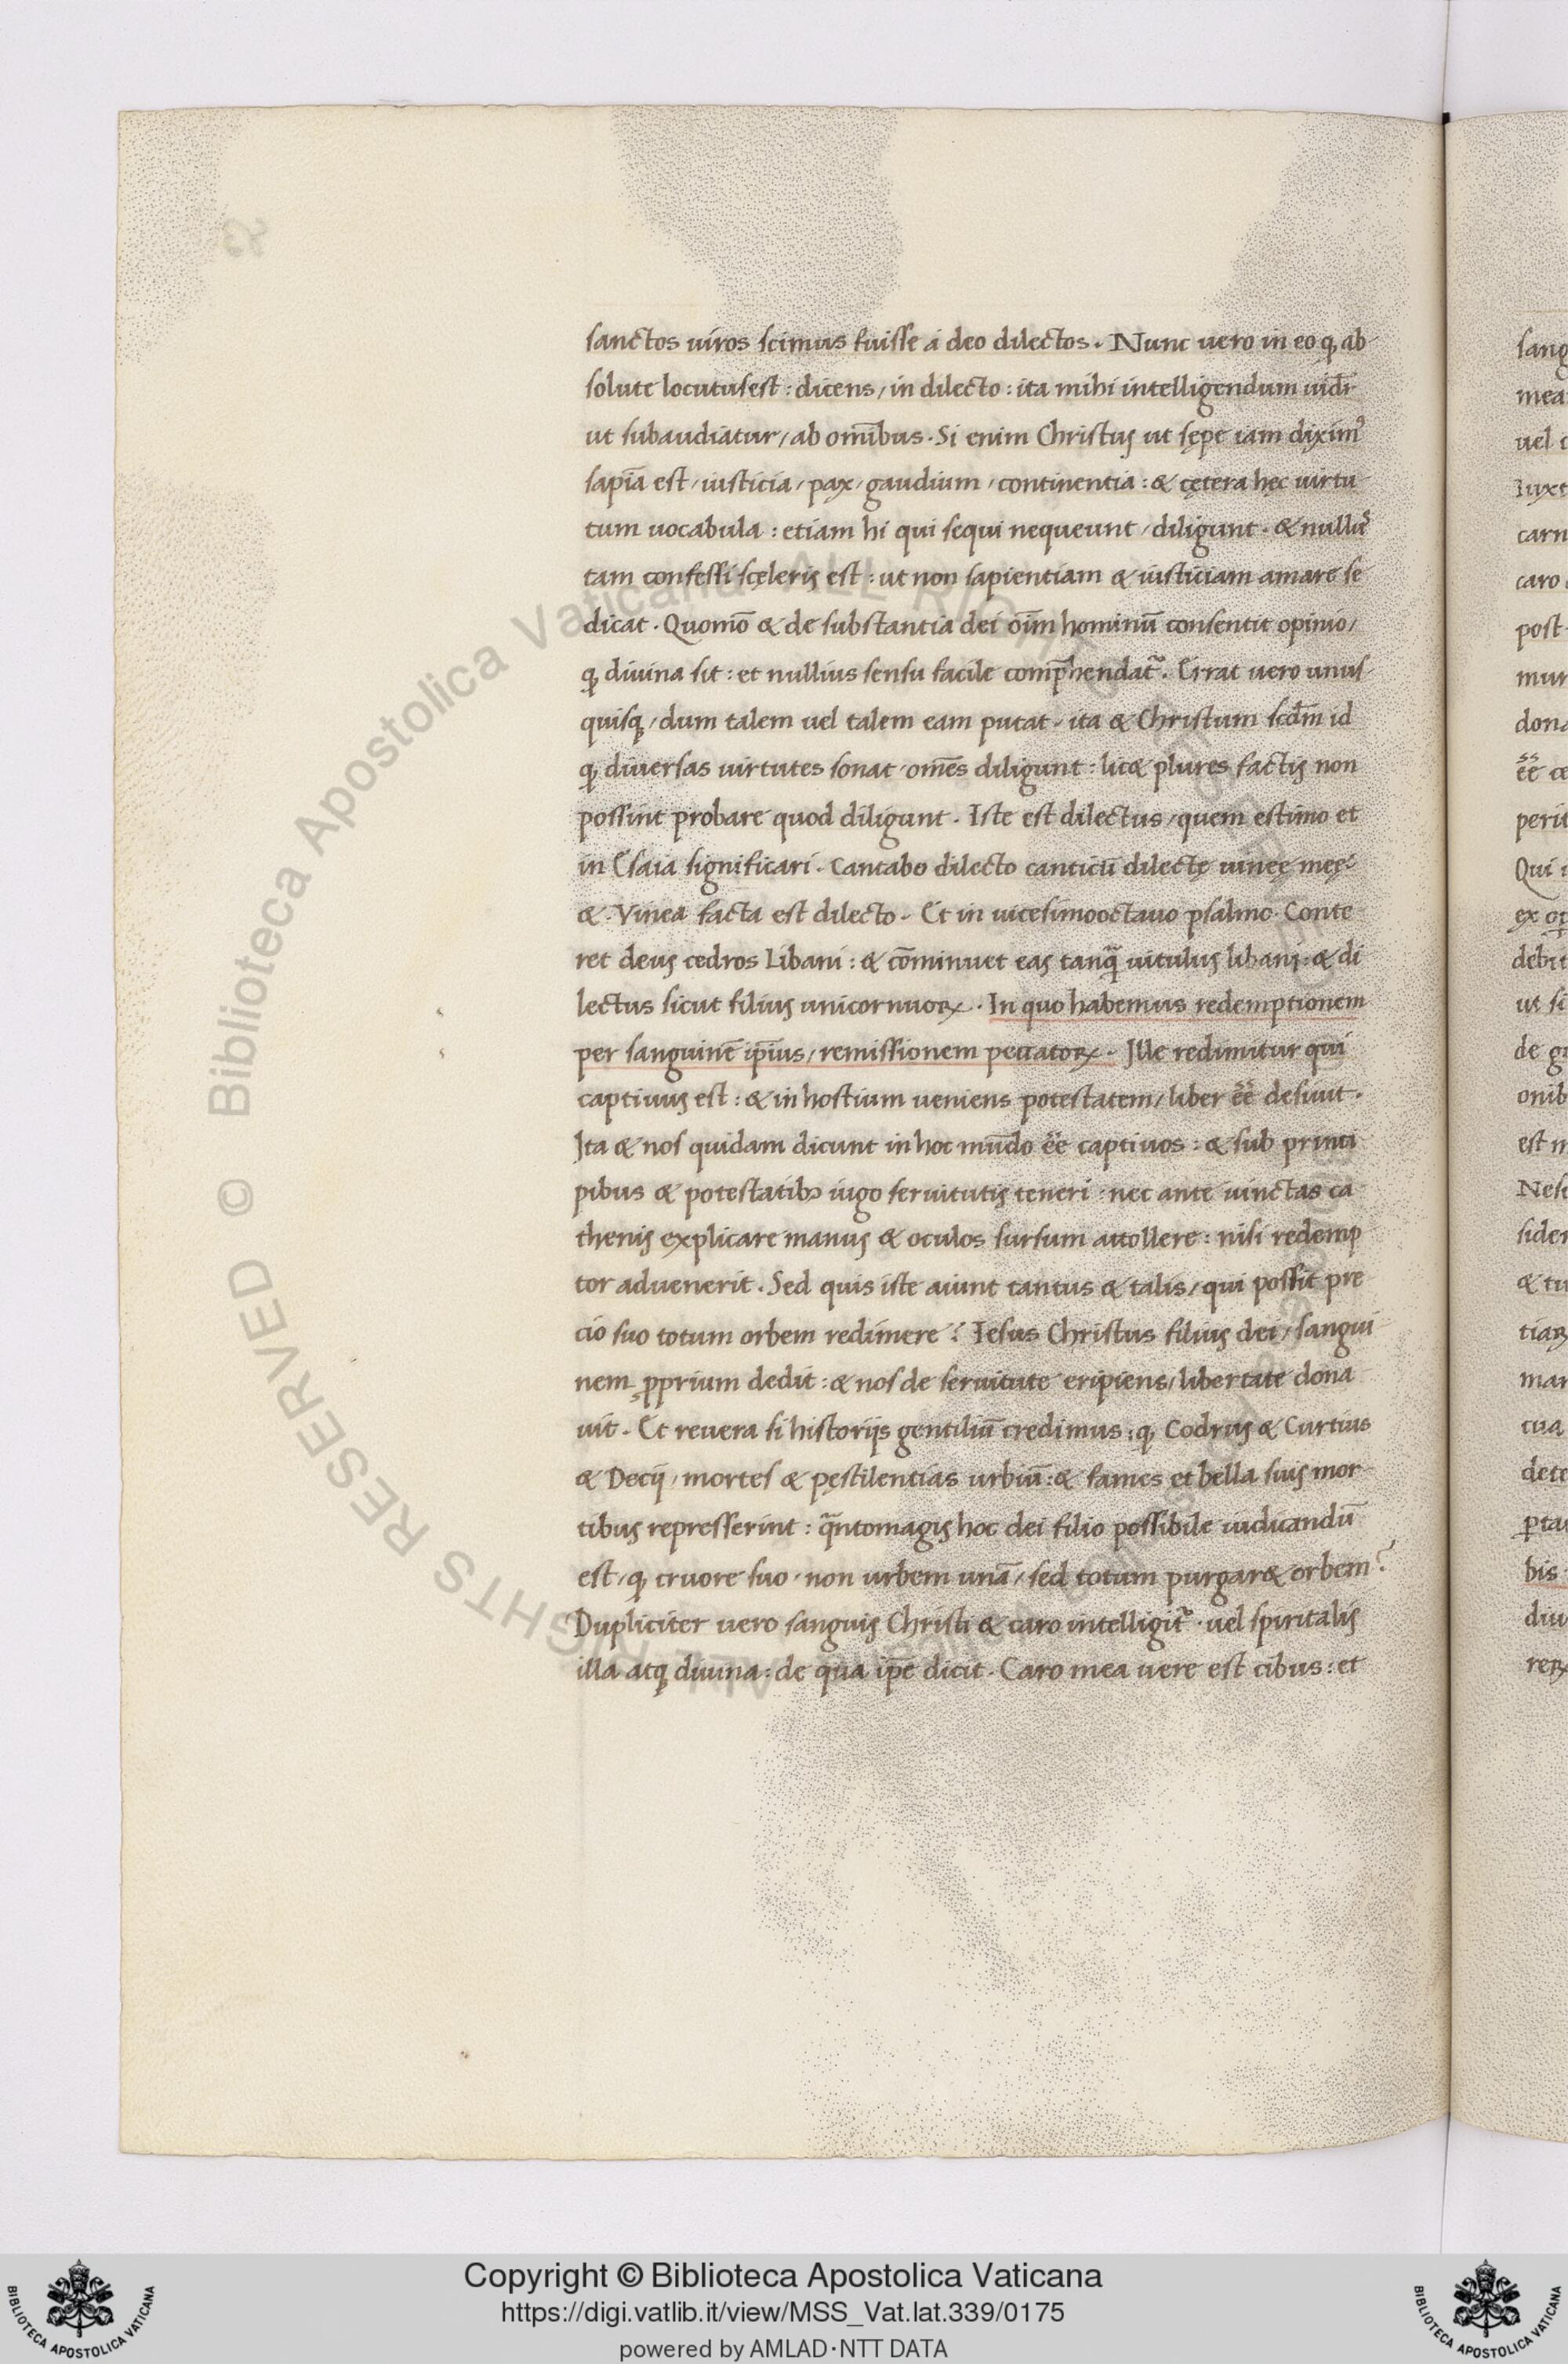 sanctos uiros scimus fuisse a deo dilectos. Nunc uero in eo q; ab
solute locutusest: dicens, in dilecto: ita mihi intelligendum uidr̄
ut subaudiatur, ab om̄ibus. Si enim Christus ut sępe iam diximꝰ
sapīa est, iusticia, pax, gaudium, continentia: & cętera hęc uirtu
tum uocabula: etiam hi qui sequi nequeunt, diligunt. & nullus
tam confessi scęleris est: ut non sapientiam & iusticiam amare se
dicat. Quomō & de substantia dei oīm hominū consentit opinio,
q; diuina sit: et nullius sensu facile comp̄hendat᷑. Errat uero unus
quisq;, dum talem uel talem eam putat. ita & Christum scdm̄ id
q; diuersas uirtutes sonat, om̄es diligunt: lic& plures factis non
possint probare quod diligunt. Iste est dilectus, quem estimo et
in Esaia significari. Cantabo dilecto canticū dilectę uineę meę:
&. Vinea facta est dilecto. Et in uicesimooctauo psalmo. Conte
ret deus cedros Libani: & cōminuet eas tanq̄ uitulus libani: & di
lectus sicut filius unicornuoꝝ. In quo habemus redemptionem
per sanguinē ip̄ius, remissionem peccatoꝝ. Ille redimitur qui
captiuus est: & in hostium ueniens potestatem, liber ēē desiuit.
Ita & nos quidam dicunt in hoc mūdo ēē captiuos: & sub princi
pibus & potestatibꝫ iugo seruitutis teneri. nec ante uinctas ca
thenis explicare manus & oculos sursum attollere: nisi redemp
tor aduenerit. Sed quis iste aiunt tantus & talis, qui possit pre
cio suo totum orbem redimere? Iesus Christus filius dei, sangui
nem ꝓprium dedit: & nos de seruitute eripiens, libertate dona
uit. Et reuera si historijs gentiliū credimus: q; Codrus & Curtius
& Decij, mortes & pęstilentias urbiū: & fames et bella suis mor
tibus represserint: q̄ntomagis hoc dei filio possibile iudicandū
est, q; cruore suo, non urbem unā, sed totum purgar& orbem?
Dupliciter uero sanguis Christi & caro intelligit᷑. uel spiritalis
illa atq; diuina: de qua ip̄e dicit. Caro mea uere est cibus: et
sang
mea
carn
caro
post
mur
dona
Qui
debit
onib
est
© Biblioteca Apostolica Vaticana ALL RIGHTS RESERVED
Copyright © Biblioteca Apostolica Vaticana
https://digi.vatlib.it/view/MSS_Vat.lat.339/0175
powered by AMLAD·NTT DATA
BIBLIOTECA APOSTOLICA VATICANA
BIBLIOTECA APOSTOLICA VATICANA